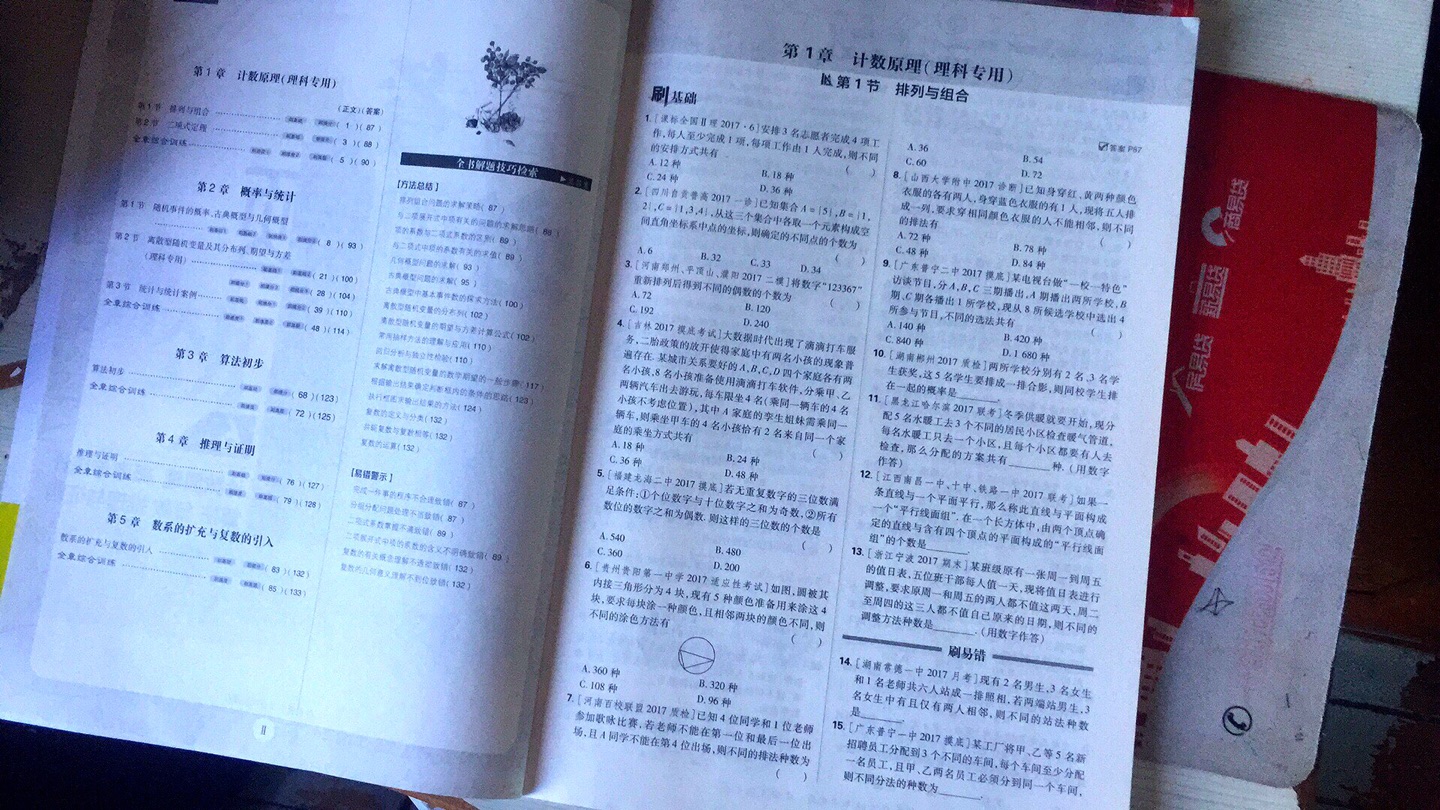 第1章 计数原理(理科专用)
(正文)(答案)
第1节 排列与组合 ( 1 )( 87 )
第2节 二项式定理 ( 3 )( 88 )
全章综合训练 ( 5 )( 90 )
第2章 概率与统计
第1节 随机事件的概率、古典概型与几何概型
( 8 )( 93 )
第2节 离散型随机变量及其分布列、期望与方差
(理科专用) ( 21 )( 100 )
第3节 统计与统计案例 ( 28 )( 104 )
( 39 )( 110 )
全章综合训练 ( 48 )( 114 )
第3章 算法初步
算法初步 ( 68 )( 123 )
全章综合训练 ( 72 )( 125 )
第4章 推理与证明
推理与证明 ( 76 )( 127 )
全章综合训练 ( 79 )( 128 )
第5章 数系的扩充与复数的引入
数系的扩充与复数的引入 ( 83 )( 132 )
全章综合训练 ( 85 )( 133 )
Ⅱ
全书解题技巧检索
[方法总结]
排列组合问题的求解策略( 87 )
与二项展开式中项有关的问题的求解思路( 88 )
项的系数与二项式系数的区别( 89 )
与二项式中项的系数有关的求值( 89 )
几何概型问题的求解( 93 )
古典概型问题的求解( 95 )
古典概型中基本事件数的探求方法( 100 )
离散型随机变量的分布列( 102 )
离散型随机变量的期望与方差计算公式( 102 )
常用抽样方法的理解与应用( 110 )
回归分析与独立性检验( 110 )
求解离散型随机变量的数学期望的一般步骤( 117 )
根据输出结果确定判断框内的条件的思路( 123 )
执行框图求输出结果的方法( 124 )
复数的定义与分类( 132 )
共轭复数与复数相等( 132 )
复数的运算( 132 )
[易错警示]
完成一件事的程序不合逻辑致错( 87 )
分组分配问题处理不当致错( 87 )
二项式系数掌握不清致错( 89 )
二项展开式中项的系数的含义不明确致错( 89 )
复数的有关概念理解不透彻致错( 132 )
复数的几何意义理解不到位致错( 132 )
第1章 计数原理(理科专用)
第1节 排列与组合
刷基础
1. [课标全国Ⅱ理2017·6]安排3名志愿者完成4项工
作,每人至少完成1项,每项工作由1人完成,则不同
的安排方式共有 ( )
A. 12种 B. 18种
C. 24种 D. 36种
2. [四川自贡普高2017一诊]已知集合A={5},B={1,
2},C={1,3,4},从这三个集合中各取一个元素构成空
间直角坐标系中点的坐标,则确定的不同点的个数为
( )
A. 6 B. 32 C. 33 D. 34
3. [河南郑州、平顶山、濮阳2017二模]将数字“123367”
重新排列后得到不同的偶数的个数为 ( )
A. 72 B. 120
C. 192 D. 240
4. [吉林2017摸底考试]大数据时代出现了滴滴打车服
务,二胎政策的放开使得家庭中有两名小孩的现象普
遍存在.某城市关系要好的A,B,C,D四个家庭各有两
名小孩,8名小孩准备使用滴滴打车软件,分乘甲、乙
两辆汽车出去游玩,每车限坐4名(乘同一辆车的4名
小孩不考虑位置),其中A家庭的孪生姐妹需乘同一
辆车,则乘坐甲车的4名小孩恰有2名来自同一个家
庭的乘坐方式共有 ( )
A. 18种 B. 24种
C. 36种 D. 48种
5. [福建龙海二中2017摸底]若无重复数字的三位数满
足条件:①个位数字与十位数字之和为奇数,②所有
数位的数字之和为偶数.则这样的三位数的个数是
( )
A. 540 B. 480
C. 360 D. 200
6. [贵州贵阳第一中学2017适应性考试]如图,圆被其
内接三角形分为4块,现有5种颜色准备用来涂这4
块,要求每块涂一种颜色,且相邻两块的颜色不同,则
不同的涂色方法有 ( )
A. 360种 B. 320种
C. 108种 D. 96种
7. [河南百校联盟2017质检]已知4位同学和1位老师
参加歌咏比赛,若老师不能在第一位和最后一位出
场,且A同学不能在第4位出场,则不同的排法种数为
( )
答案 P87
A. 36 B. 54
C. 60 D. 72
8. [山西大学附中2017诊断]已知身穿红、黄两种颜色
衣服的各有两人,身穿蓝色衣服的有1人,现将五人排
成一列,要求穿相同颜色衣服的人不能相邻,则不同
的排法有 ( )
A. 72种 B. 78种
C. 48种 D. 84种
9. [广东普宁二中2017摸底]某电视台做“一校一特色”
访谈节目,分A,B,C三期播出,A期播出两所学校,B
期、C期各播出1所学校,现从8所候选学校中选出4
所参与节目,不同的选法共有 ( )
A. 140种 B. 420种
C. 840种 D. 1 680种
10. [湖南郴州2017质检]两所学校分别有2名、3名学
生获奖,这5名学生要排成一排合影,则同校学生排
在一起的概率是________.
11. [黑龙江哈尔滨2017联考]冬季供暖就要开始,现分
配5名水暖工去3个不同的居民小区检查暖气管道,
每名水暖工只去一个小区,且每个小区都要有人去
检查,那么分配的方案共有________种.(用数字
作答)
12. [江西南昌一中、十中、铁路一中2017联考]如果一
条直线与一个平面平行,那么称此直线与平面构成
一个“平行线面组”.在一个长方体中,由两个顶点确
定的直线与含有四个顶点的平面构成的“平行线面
组”的个数是________.
13. [浙江宁波2017期末]某班级原有一张周一到周五
的值日表,五位班干部每人值一天,现将值日表进行
调整,要求原周一和周五的两人都不值这两天,周二
至周四的这三人都不值自己原来的日期,则不同的
调整方法种数是________.(用数字作答)
刷易错
14. [湖南常德一中2017月考]现有2名男生,3名女生
和1名老师共六人站成一排照相,若两端站男生,3
名女生中有且仅有两人相邻,则不同的站法种数
是________.
15. [广东普宁一中2017摸底]某工厂将甲、乙等5名新
招聘员工分配到3个不同的车间,每个车间至少分配
一名员工,且甲、乙两名员工必须分到同一个车间,
则不同分法的种数为________.
商易贷
薪易贷
房易贷